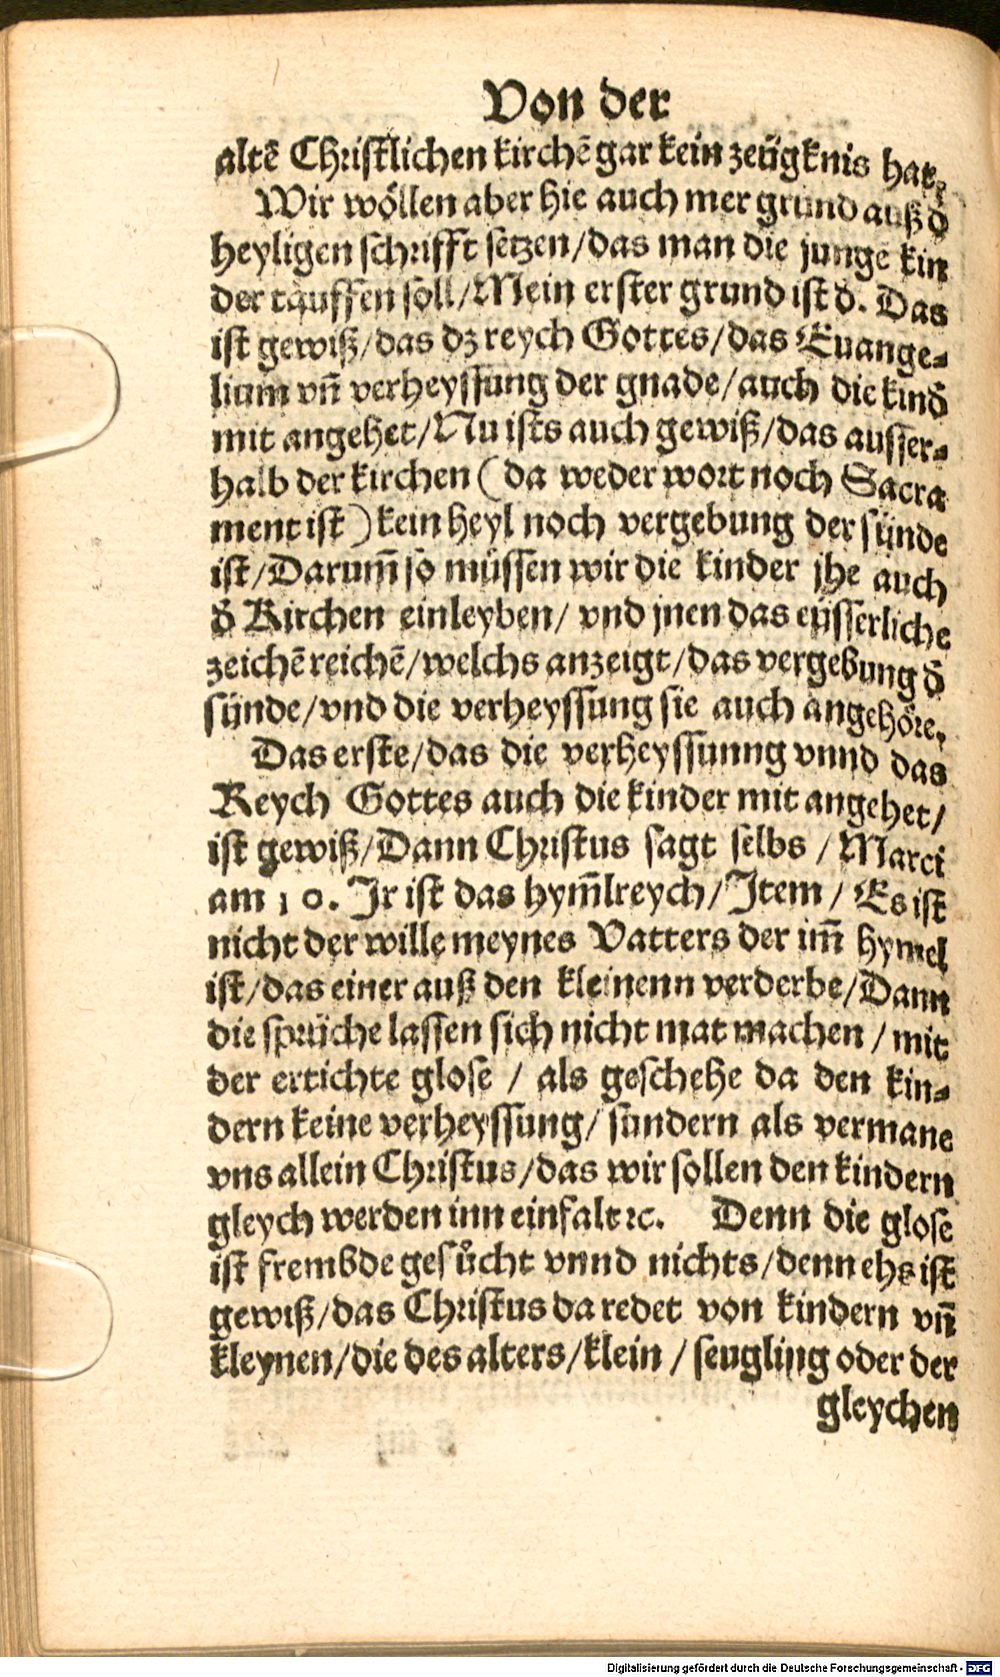 Von der
altē Christlichen kirchē gar kein zeügknis hat,
Wir wöllen aber hie auch mer grund auß d̄
heyligen schrifft setzen/das man die junge kin
der täuffen soll/Mein erster grund ist d̄. Das
ist gewiß/das dz reych Gottes/das Euange-
lium vn̄ verheyssung der gnade/auch die kind̄
mit angehet/Nu ists auch gewiß/das ausser-
halb der kirchen (da weder wort noch Sacra
ment ist) kein heyl noch vergebung der sünde
ist/Darum̄ so müssen wir die kinder jhe auch
d̄ Kirchen einleyben/ vnd jnen das eüsserliche
zeichē reichē/welchs anzeigt/das vergebung d̄
sünde/vnd die verheyssung sie auch angehöre,
Das erste/das die verheyssunng vnnd das
Reych Gottes auch die kinder mit angehet/
ist gewiß/Dann Christus sagt selbs / Marci
am 10. Jr ist das hym̄lreych/Item / Es ist
nicht der wille meynes Vatters der im̄ hymel
ist/das einer auß den kleinenn verderbe/Dann
die sprüche lassen sich nicht mat machen / mit
der ertichte glose / als geschehe da den kin-
dern keine verheyssung/ sundern als vermane
vns allein Christus/das wir sollen den kindern
gleych werden inn einfalt ꝛc. Denn die glose
ist frembde gesůcht vnnd nichts/denn ehs ist
gewiß/das Christus da redet von kindern vn̄
kleynen/die des alters/klein / seugling oder der
gleychen
Digitalisierung gefördert durch die Deutsche Forschungsgemeinschaft - DFG